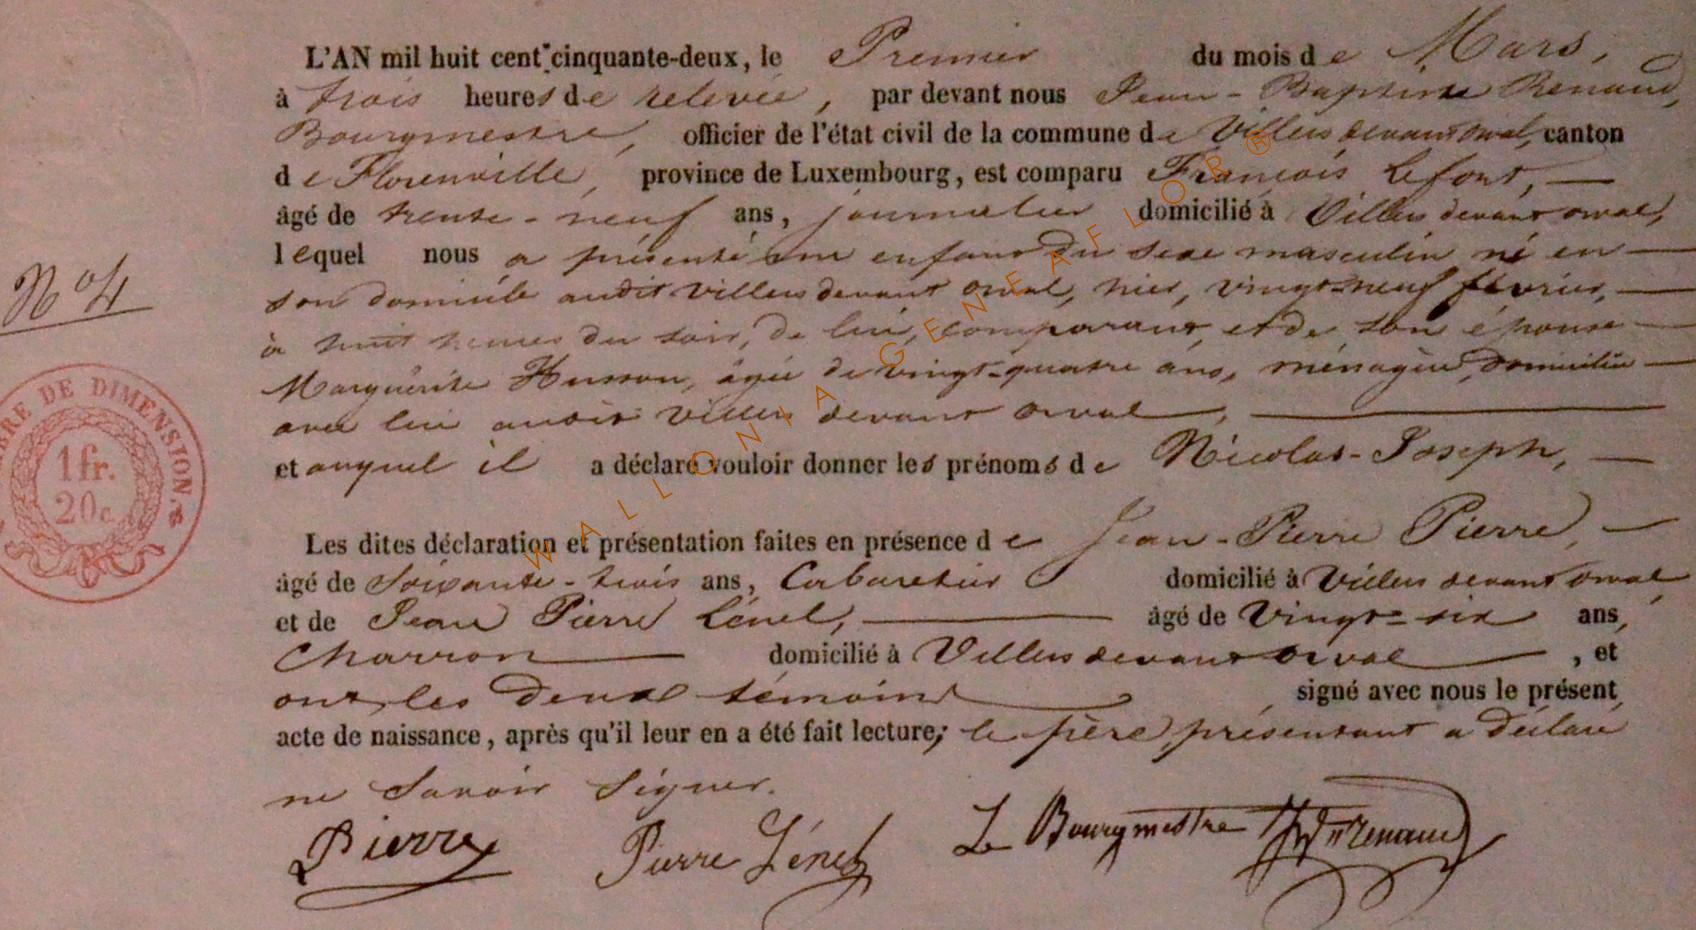 L'AN mil huit cent cinquante-deux, le Premier du mois de Mars,
à trois heures de relevée, par devant nous Jean-Baptiste Renaud,
Bourgmestre, officier de l'état civil de la commune de Villers devant orval, canton
de Florenville, province de Luxembourg, est comparu François Lefort,
âgé de trente-neuf ans, journalier domicilié à Villers devant orval,
lequel nous a présenté un enfant du sexe masculin né en
son domicile audit Villers devant orval, hier, vingt-neuf février,
à huit heures du soir, de lui, comparant, et de son épouse
Marguérite Husson, âgée de vingt-quatre ans, ménagère, domiciliée
avec lui audit Villers devant orval,
et auquel il a déclaré vouloir donner les prénoms de Nicolas-Joseph,
Les dites déclaration et présentation faites en présence de Jean-Pierre Pierre,
âgé de Soixante-trois ans, Cabaretier domicilié à Villers devant orval,
et de Jean Pierre Lénel, âgé de Vingt-six ans,
Charron domicilié à Villers devant orval, et
ont, les deux témoins signé avec nous le présent
acte de naissance, après qu'il leur en a été fait lecture; le père, présentant a déclaré
ne Savoir Signer.
Pierre Pierre Lénel Le Bourgmestre Renaud
N° 4
TIMBRE DE DIMENSION
1 fr.
20 c.
WALLONIA GENEAFLOR®